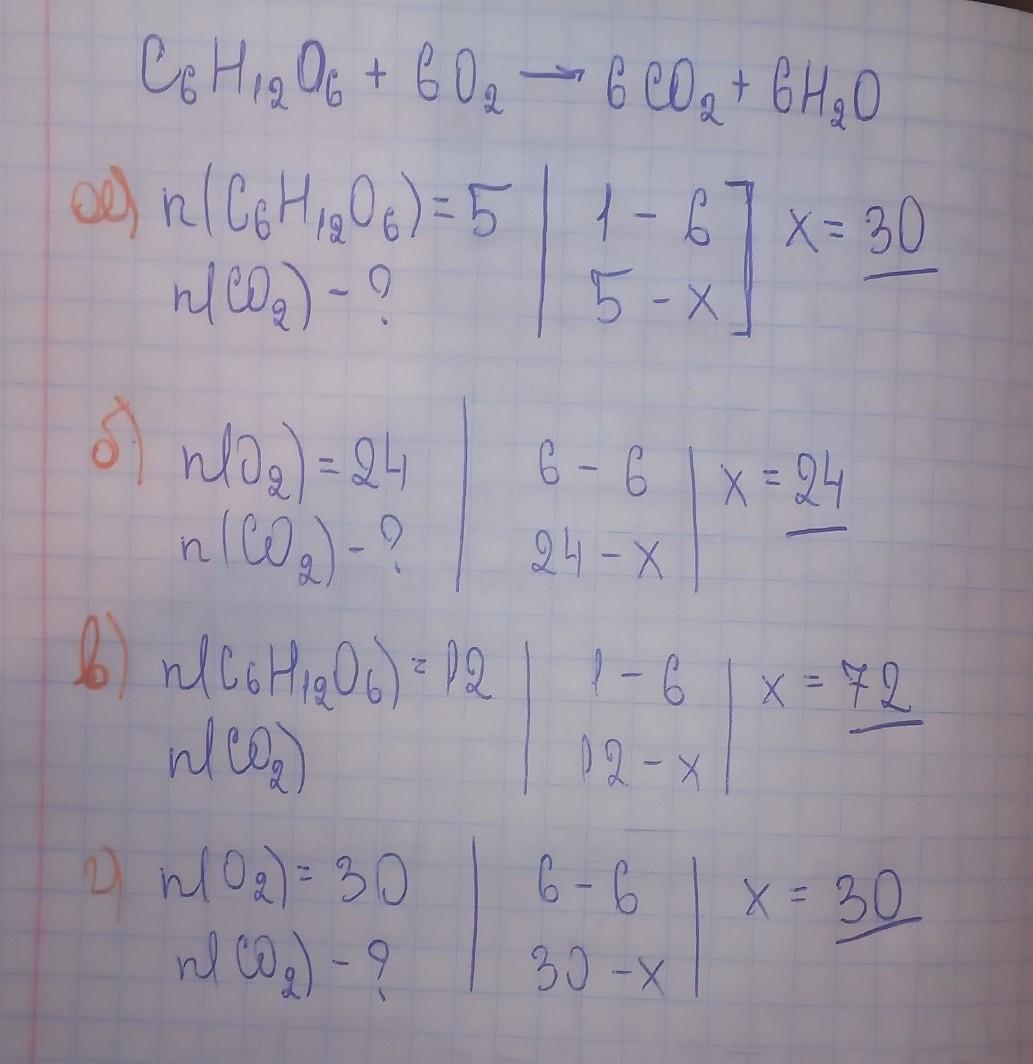 C₆H₁₂O₆ + 6O₂ → 6CO₂ + 6H₂O
а) n(C₆H₁₂O₆) = 5 | 1 – 6 ] x = 30
n(CO₂) – ? | 5 – x ]
б) n(O₂) = 24 | 6 – 6 | x = 24
n(CO₂) – ? | 24 – x |
в) n(C₆H₁₂O₆) = 12 | 1 – 6 | x = 72
n(CO₂) | 12 – x |
г) n(O₂) = 30 | 6 – 6 | x = 30
n(CO₂) – ? | 30 – x |